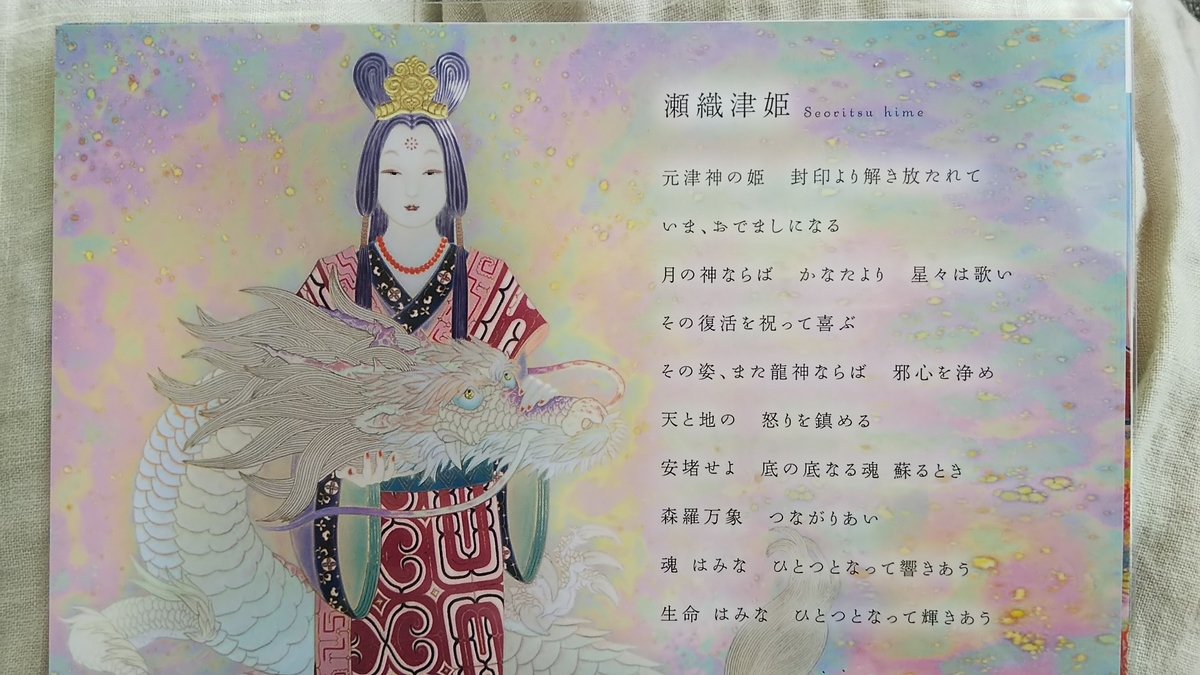 瀬織津姫 Seoritsu hime
元津神の姫　封印より解き放たれて
いま、おでましになる
月の神ならば　かなたより　星々は歌い
その復活を祝って喜ぶ
その姿、また龍神ならば　邪心を浄め
天と地の　怒りを鎮める
安堵せよ　底の底なる魂 蘇るとき
森羅万象　つながりあい
魂 はみな　ひとつとなって響きあう
生命 はみな　ひとつとなって輝きあう